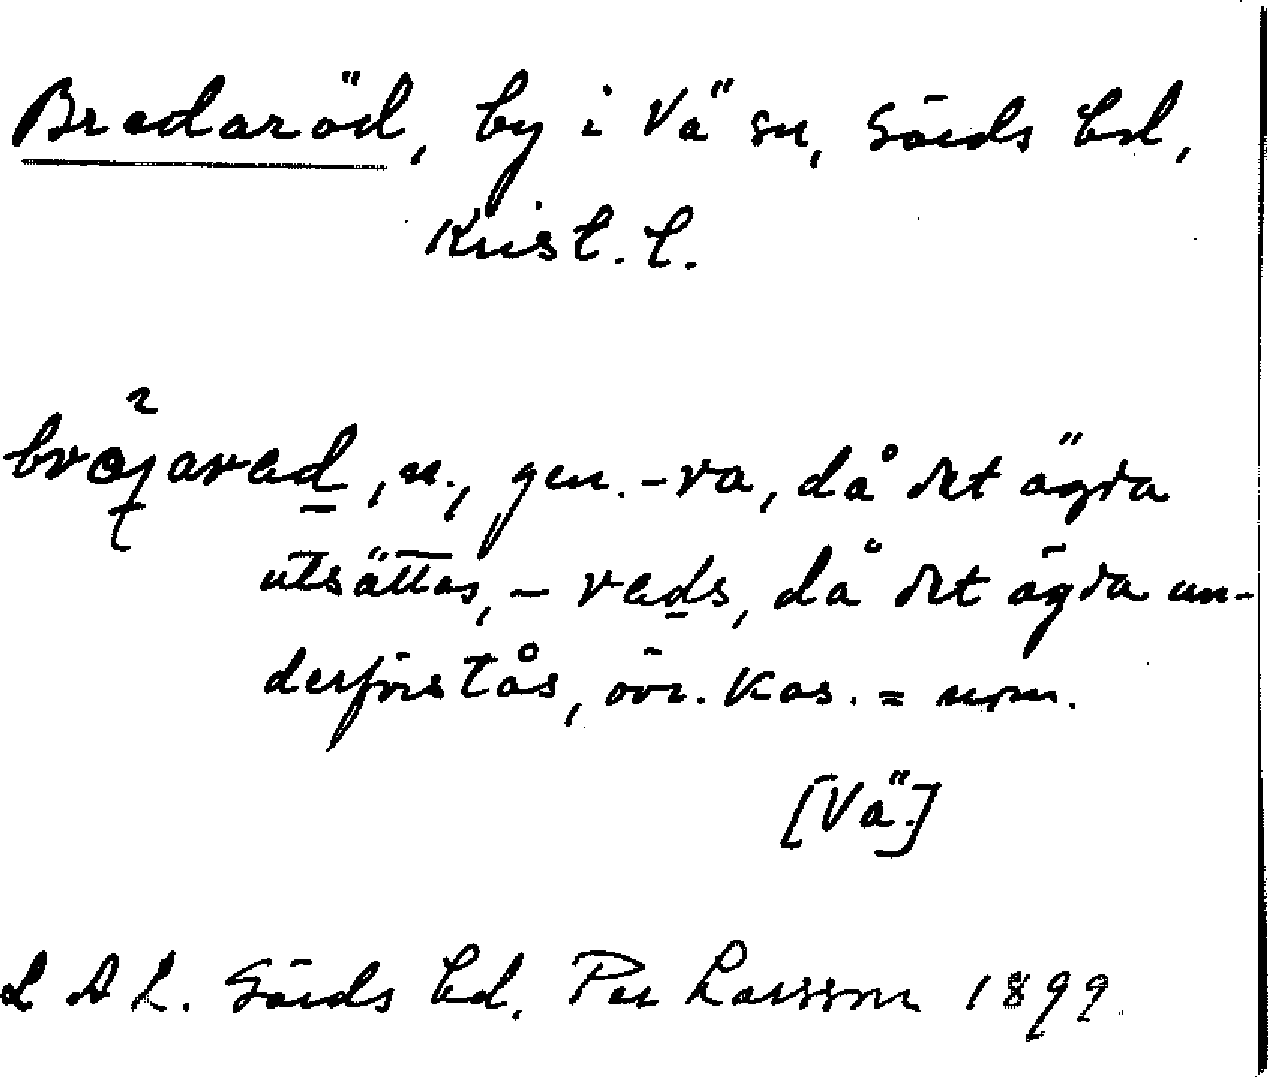 Bredaröd, by i Vä sn, Gärds hd,
Krist. l.
bræ²jarad, n., gen. -ra, då det ägda
utsättas, - rads, då det ägda un-
derförstås, övr. kas. = nom.
[Vä]
L A L. Gärds hd. Per Larsson 1899.